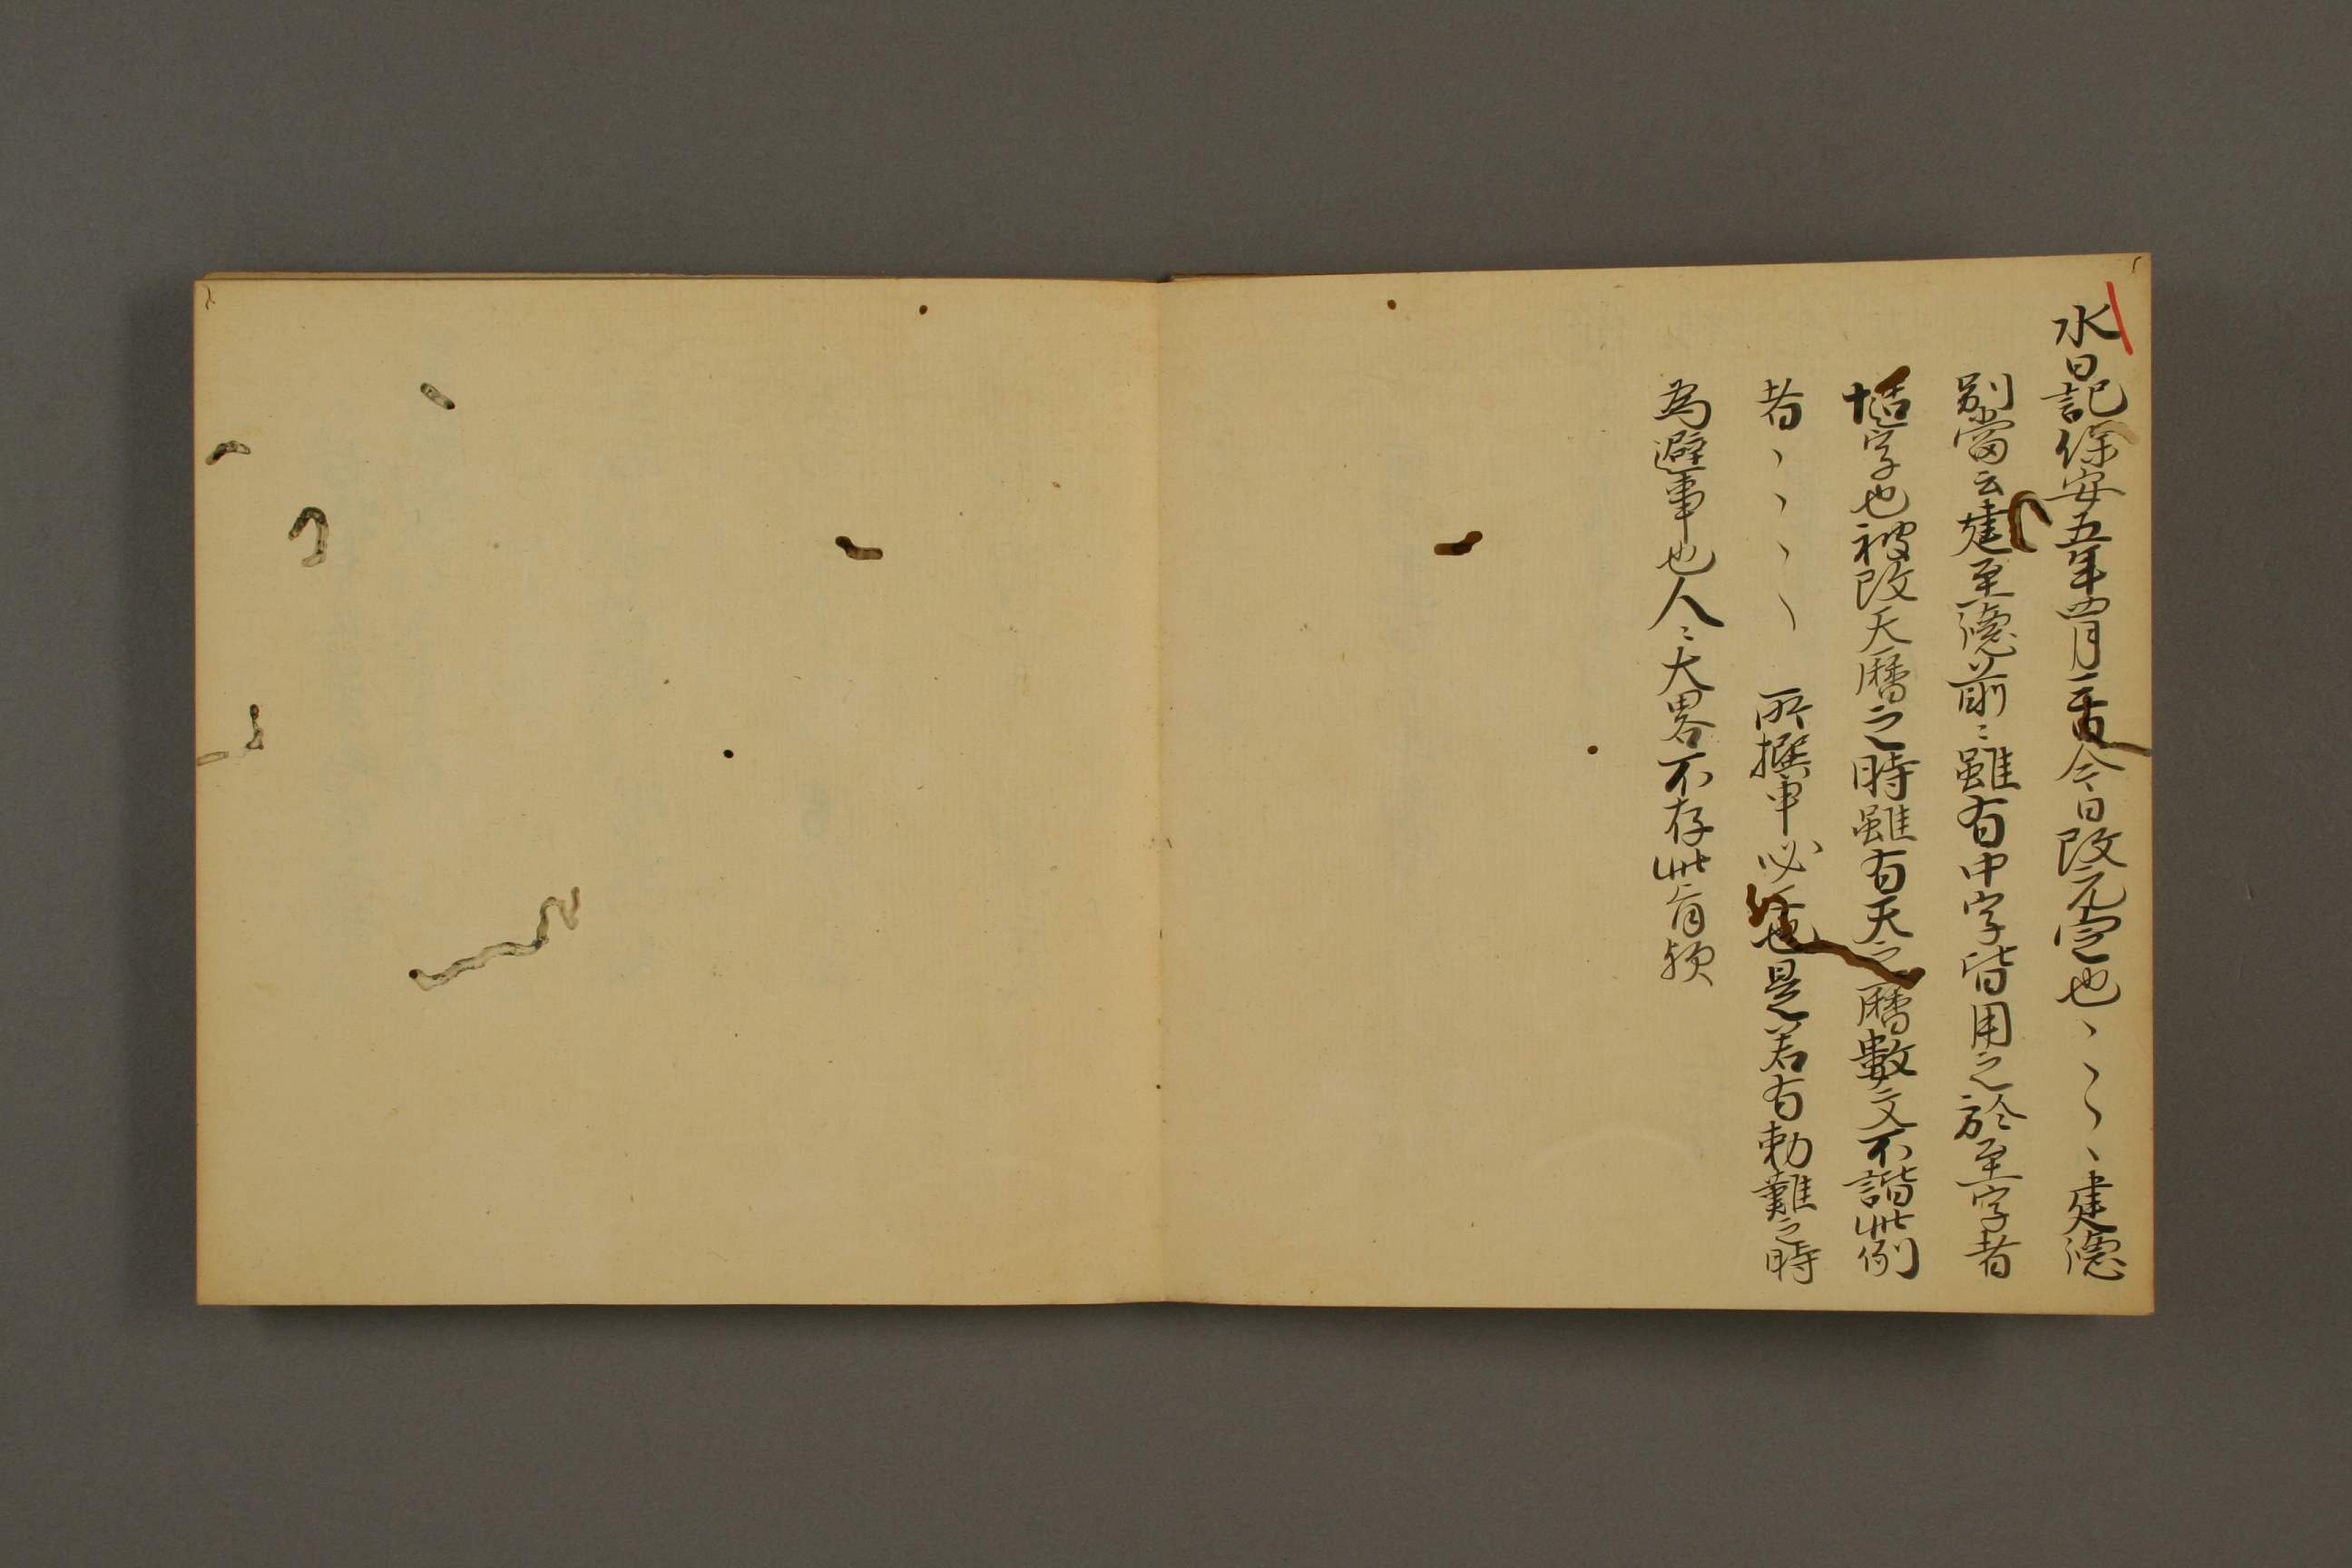 水日記保安五年四月三日今日改元定也、、、、建德
別當云建至德前〻雖有中字皆用之於至字者
字也被改天曆之時雖有天之曆數文不諧此例
者、、、、所撰申必也是若有勅難之時
為避事也人〻大畧不存此旨欤